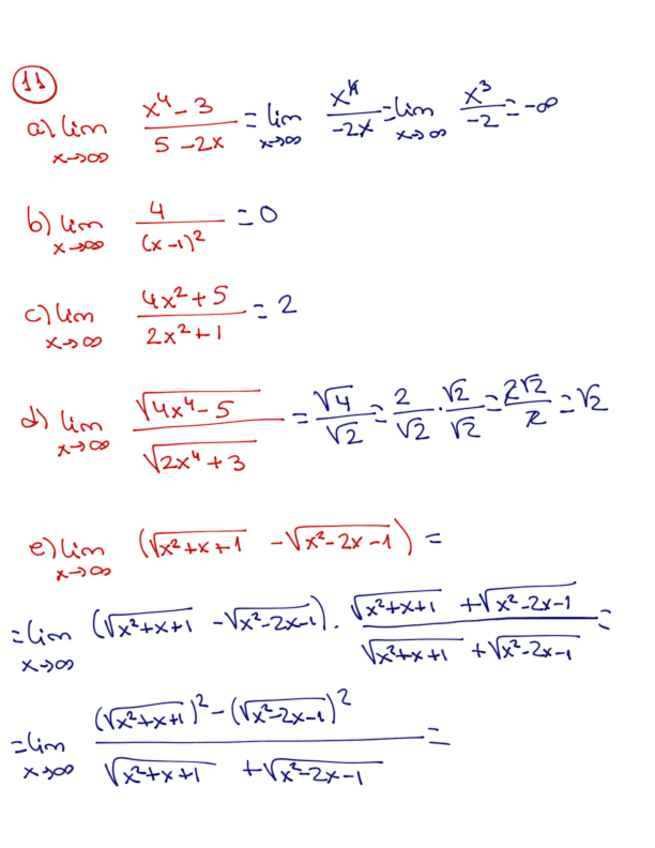 11
a) lim x→∞ (x⁴-3)/(5-2x) = lim x→∞ x⁴/(-2x) = lim x→∞ x³/(-2) = -∞
b) lim x→∞ 4/(x-1)² = 0
c) lim x→∞ (4x²+5)/(2x²+1) = 2
d) lim x→∞ √(4x⁴-5)/√(2x⁴+3) = √4/√2 = 2/√2 · √2/√2 = 2√2/2 = √2
e) lim x→∞ (√(x²+x+1) - √(x²-2x-1)) =
= lim x→∞ (√(x²+x+1) - √(x²-2x-1)) · (√(x²+x+1) + √(x²-2x-1))/(√(x²+x+1) + √(x²-2x-1)) =
= lim x→∞ ((√(x²+x+1))² - (√(x²-2x-1))²)/(√(x²+x+1) + √(x²-2x-1)) =